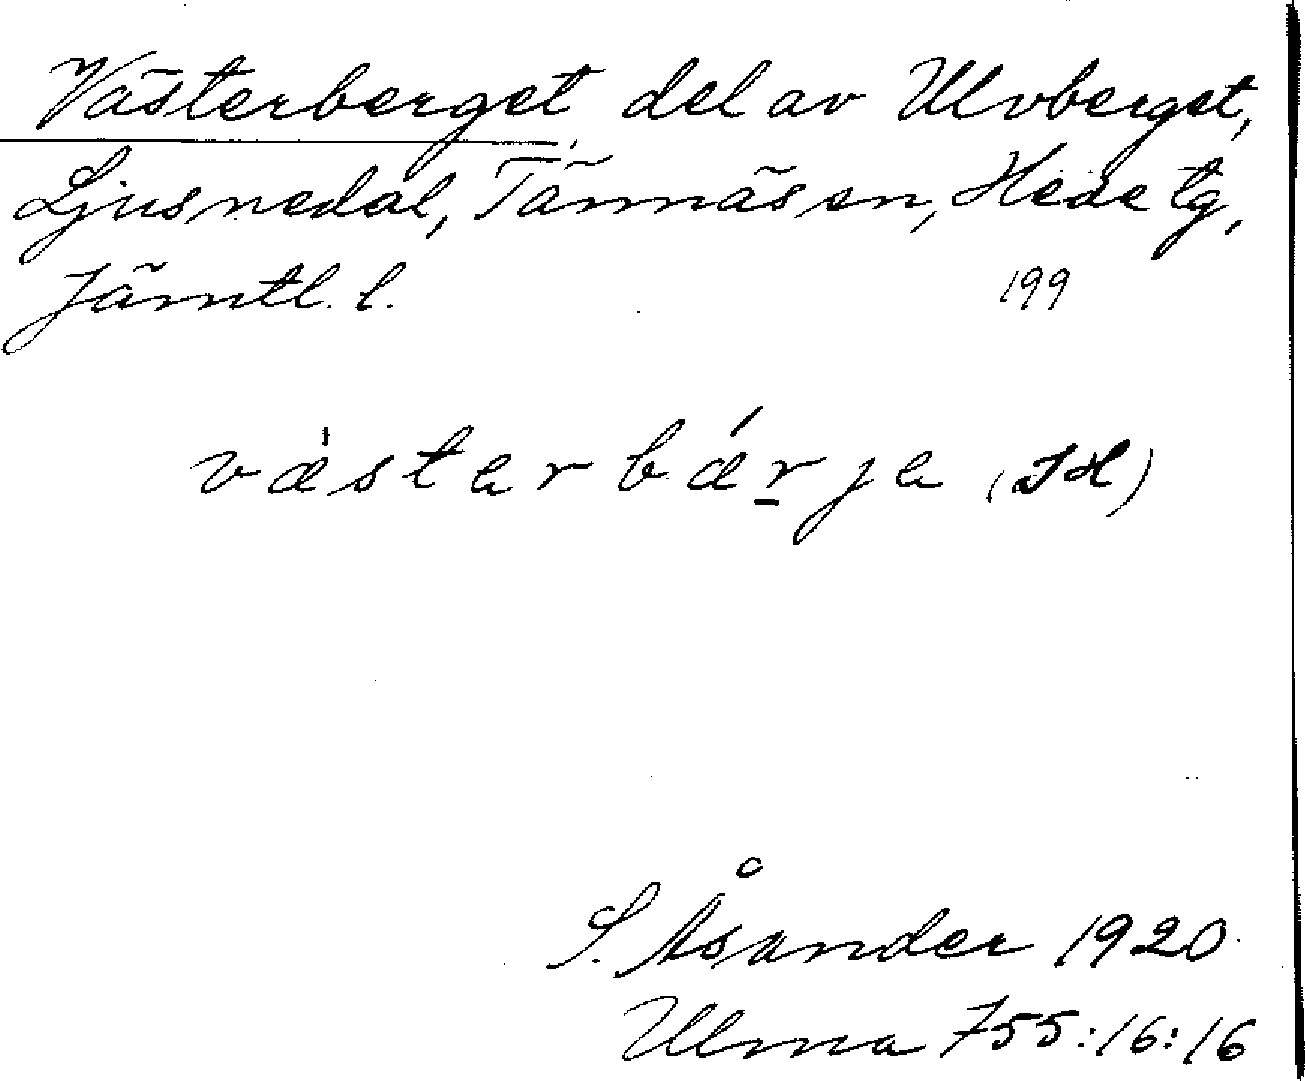 Västerberget, del av Ulvberget,
Ljusnedal, Tännäs sn, Hede tg,
Jämtl. l. 199
væ̀starbǽr̲ja (JH)
S. Åsander 1920
Ulma 755:16:16